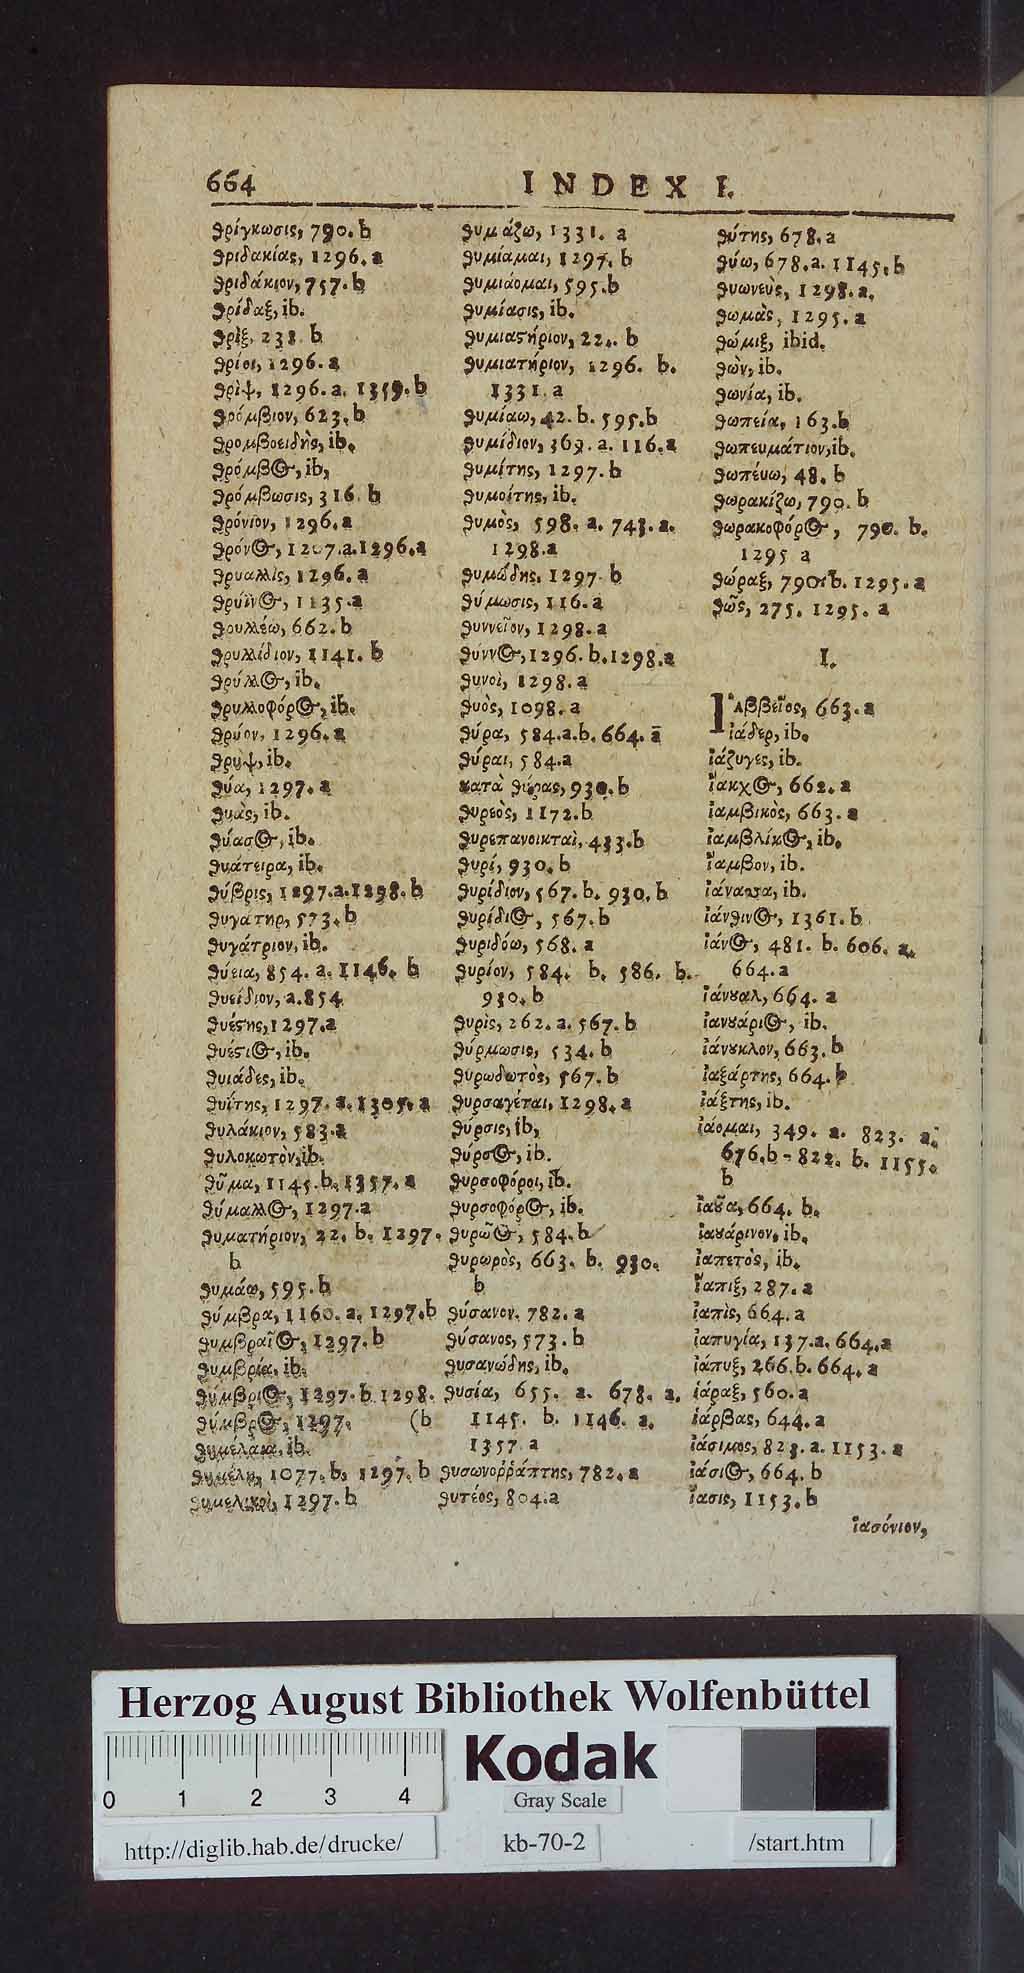 664
INDEX I.
θρίγκωσις, 790. b
θριδακίας, 1296. a
θριδάκιον, 757. b
θρίδαξ, ib.
θρὶξ, 238. b
θρίοι, 1296. a
θρὶψ, 1296. a. 1359. b
θρόμβιον, 623. b
θρομβοειδὴς, ib.
θρόμβος, ib,
θρόμβωσις, 316. b
θρόνιον, 1296. a
θρόνος, 1207. a. 1296. a
θρυαλλὶς, 1296. a
θρύϊνος, 1135. a
θρυλλέω, 662. b
θρυλλίδιον, 1141. b
θρύλλος, ib.
θρυλλοφόρος, ib.
θρύον, 1296. a
θρὺψ, ib.
θύα, 1297. a
θυὰς, ib.
θύασος, ib.
θυάτειρα, ib.
θύβρις, 1297. a. 1298. b
θυγάτηρ, 573. b
θυγάτριον, ib.
θύεια, 854. a. 1146. b
θυείδιον, a. 854
θυέστης, 1297. a
θυέστιος, ib.
θυιάδες, ib.
θυΐτης, 1297. a. 1305. a
θυλάκιον, 583. a
θυλοκωτὸν, ib.
θῦμα, 1145. b. 1357. a
θύμαλλος, 1297. a
θυματήριον, 22. b. 1297.
b
θυμάω, 595. b
θύμβρα, 1160. a. 1297. b
θυμβραῖος, 1297. b
θυμβρία, ib.
θύμβριος, 1297. b. 1298.
θύμβρος, 1297. (b
θυμέλαια, ib.
θυμέλη, 1077. b, 1297. b
θυμελικοὶ, 1297. b
θυμάζω, 1331. a
θυμίαμαι, 1297. b
θυμιάομαι, 595. b
θυμίασις, ib.
θυμιαστήριον, 22. b
θυμιατήριον, 1296. b.
1331. a
θυμιάω, 42. b. 595. b
θυμίδιον, 369. a. 116. a
θυμίτης, 1297. b
θυμοίτης, ib.
θυμὸς, 598. a. 743. a.
1298. a
θυμώδης, 1297. b
θύμωσις, 116. a
θυννεῖον, 1298. a
θύννος, 1296. b. 1298. a
θυνοὶ, 1298. a
θυὸς, 1098. a
θύρα, 584. a. b. 664. a
θύραι, 584. a
κατὰ θύρας, 930. b
θυρεὸς, 1172. b
θυρεπανοικταὶ, 433. b
θυρί, 930. b
θυρίδιον, 567. b. 930. b
θυρίδιος, 567. b
θυριδόω, 568. a
θυρίον, 584. b. 586. b.
930. b
θυρὶς, 262. a. 567. b
θύρμωσις, 534. b
θυρωδωτὸς, 567. b
θυρσαγέται, 1298. a
θύρσις, ib,
θύρσος, ib.
θυρσοφόροι, ib.
θυρσοφόρος, ib.
θυρῶος, 584. b
θυρωρὸς, 663. b. 930.
b
θύσανον, 782. a
θύσανος, 573. b
θυσανώδης, ib.
θυσία, 655. a. 678. a.
1145. b. 1146. a.
1357. a
θυσωνοῤῥάπτης, 782. a
θυτέος, 804. a
θύτης, 678. a
θύω, 678. a. 1145. b
θυωνεὺς, 1298. a.
θωμὰς, 1295. a
θώμιξ, ibid.
θὼν, ib.
θωνία, ib.
θωπεία, 163. b
θωπευμάτιον, ib.
θωπεύω, 48. b
θωρακίζω, 790. b
θωρακοφόρος, 790. b.
1295 a
θώραξ, 790. b. 1295. a
θῶς, 275. 1295. a
I.
Ἰαββεῖος, 663. a
ἰάδερ, ib.
ἰάζυγες, ib.
ἴακχος, 662. a
ἰαμβικὸς, 663. a
ἰαμβλίκος, ib.
ἴαμβον, ib.
ἰάνασσα, ib.
ἰάνθινος, 1361. b
ἰάνος, 481. b. 606. a.
664. a
ἰάνουαλ, 664. a
ἰανουάριος, ib.
ἰάνουκλον, 663. b
ἰαξάρτης, 664. b
ἰάξτης, ib.
ἰάομαι, 349. a. 823. a.
676. b - 822. b. 1155.
b
ἰαῦα, 664. b.
ἰαυάρινον, ib.
ἰαπετὸς, ib.
ἴαπιξ, 287. a
ἰαπὶς, 664. a
ἰαπυγία, 137. a. 664. a
ἰάπυξ, 266. b. 664. a
ἰάραξ, 560. a
ἰάρβας, 644. a
ἰάσιμος, 823. a. 1153. a
ἰάσιος, 664. b
ἴασις, 1153. b
ἰασόνιον,
Herzog August Bibliothek Wolfenbüttel
Kodak
Gray Scale
0 1 2 3 4
http://diglib.hab.de/drucke/ kb-70-2 /start.htm